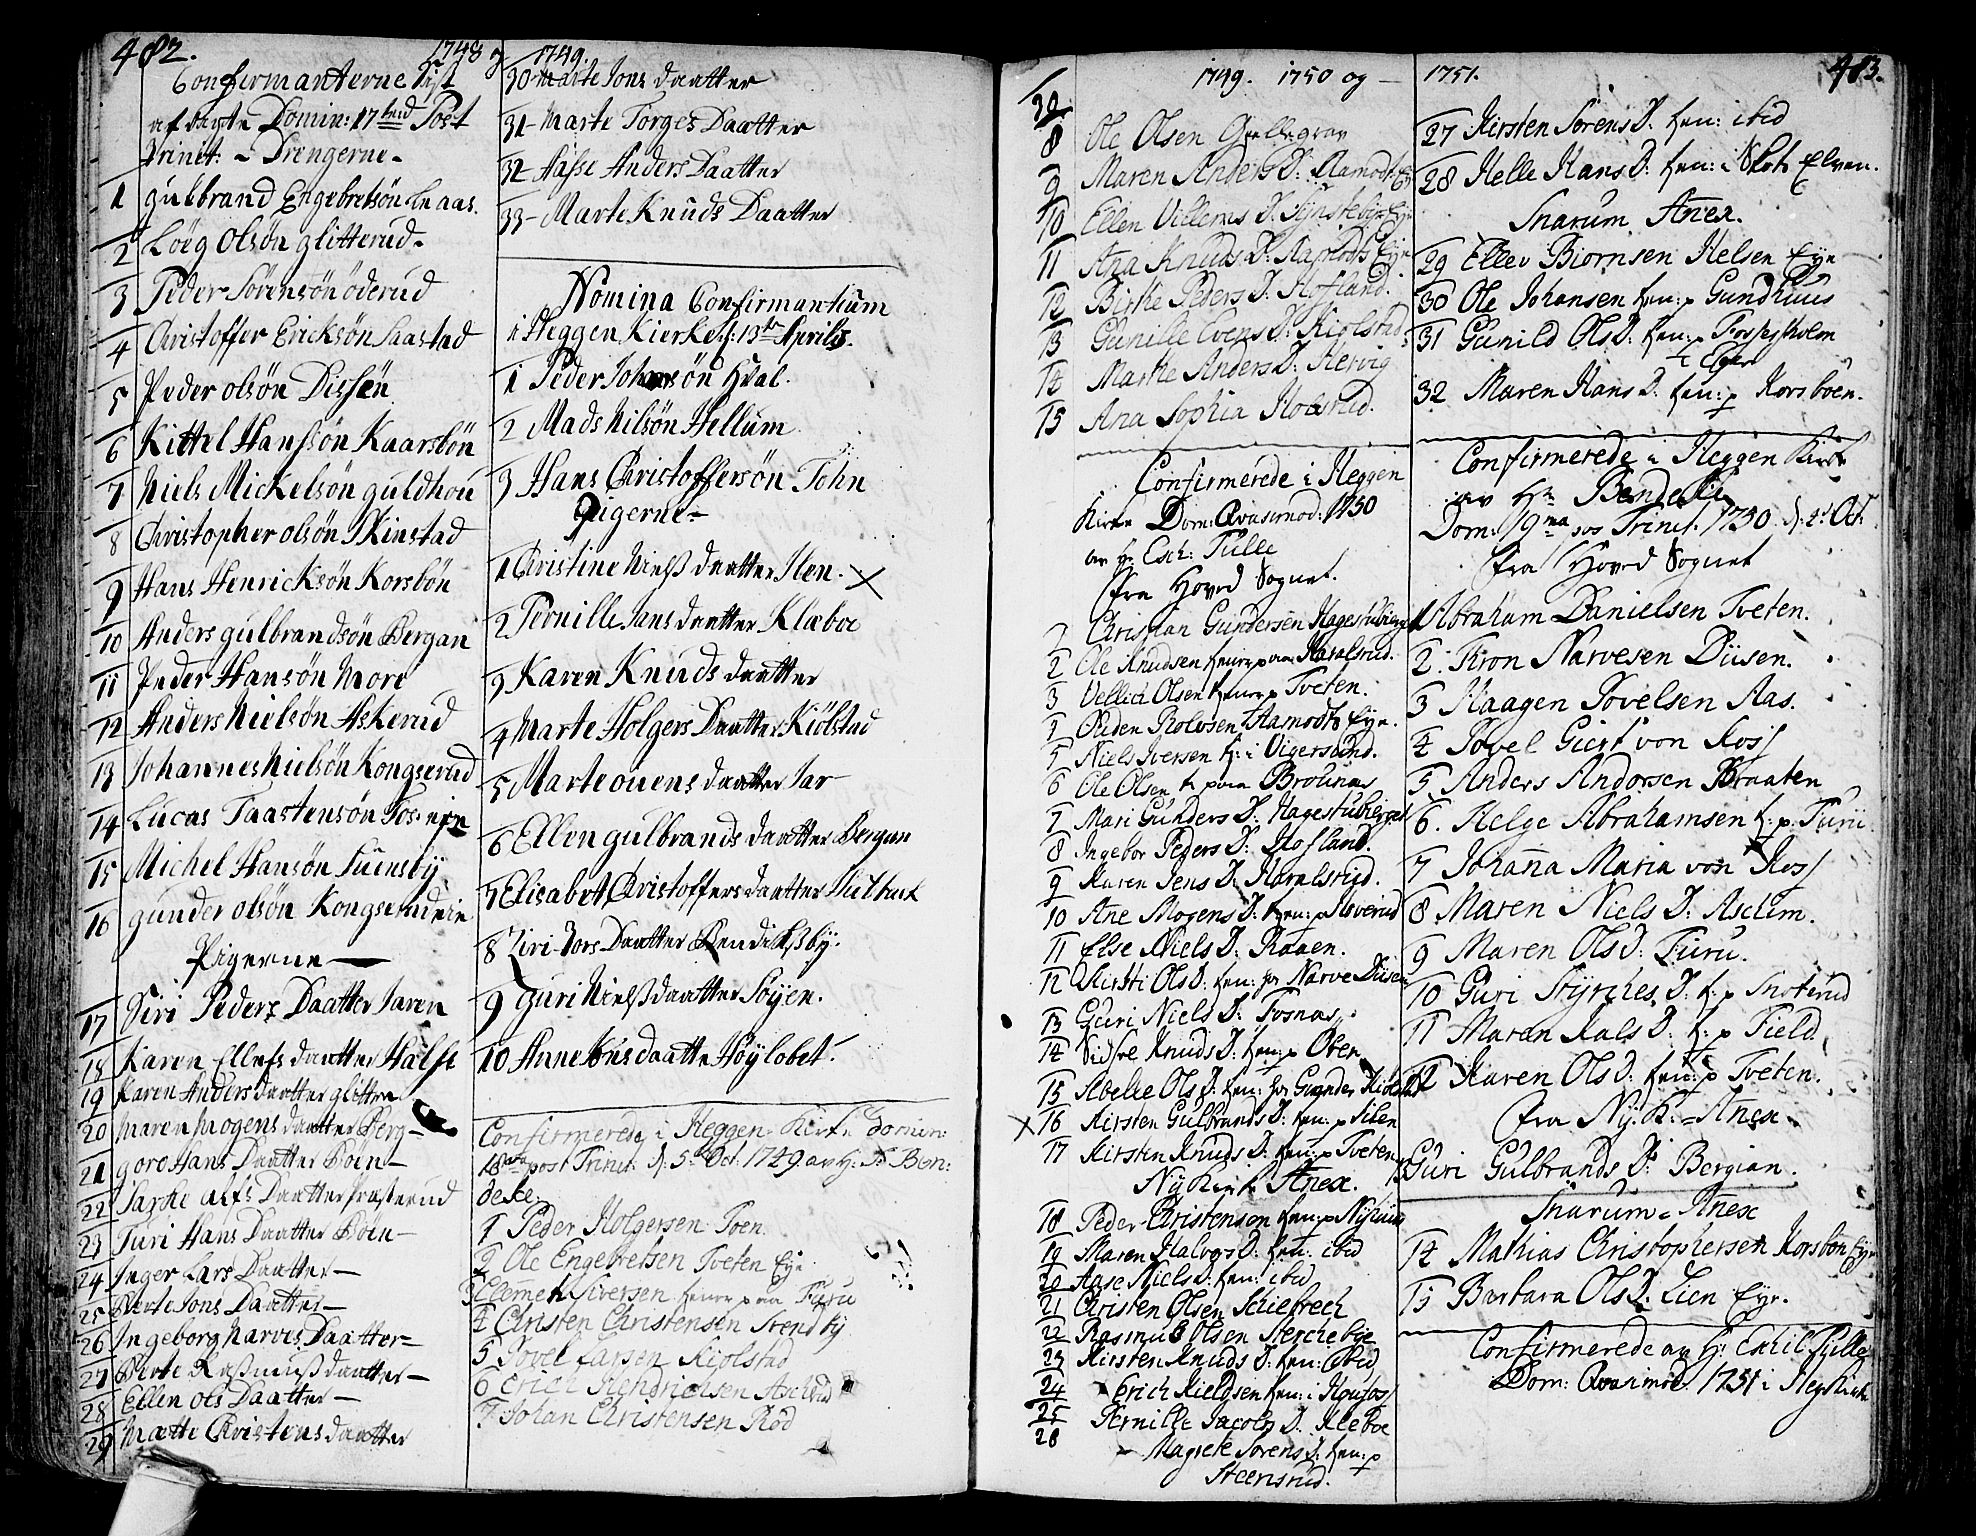 482.
1748 og 1749.
Confirmanterne
af Dagte Domin: 17tend Post
Trinit: - Drengerne -
1 Gulbrand Engebretsøn
2 Loeg Olsøn Glitterud.
3 Peder Sørensøn Øderud
4 Christoffer Ericksøn Saastad
5 Peder Olsøn Dissen
6 Kittel Hanssøn Kaarsbøn
7 Niels Mickelsøn Guldhou
8 Christopher Olsøn Skinstad
9 Hans Henricksøn Korsbøn
10 Anders Gulbrandsøn Bergan
11 Peder Hansøn More
12 Anders Nielsøn Askerud
13 Johannes Nielsøn Kongserud
14 Lucas Taastensøn
15 Michel Hansøn Suensby
16 Gunder Olsøn Kongserudeie
Pigerne
17 Siri Peders Daatter Jaren
18 Karen Ellefs Daatter
19 Karen Anders Daatter Glittre
20 Maren Mogens Daatter Berg
21 Goro Hans Daatter Boen
22 Alfs Daatter
23 Turi Hans Daatter Boen
24 Inger Lars Daatter
25 Berte Jons Daatter
26 Ingeborg Narves Daatter
27 Berte Rasmuss Daatter
28 Ellen Ols Daatter
29 Mætte Christens Daatter
30 Marte Jons Daatter
31 Marte Torges Daatter
32 Aasse Anders Daatter
33 Marte Knuds Daatter
Nomina Confirmantium
i Heggen Kierke d: 13de Aprilis.
1 Peder Johansøn Hval.
2 Mads Nilsøn Hellum
3 Hans Christoffersøn Tohn
Pigerne
1 Christine Nielss Daatter Ilen. X
2 Pernille Jans Daatter Klæboe
3 Karen Knuds Daatter
4 Marte Holgers Daatter Kiølstad
5 Marte Ouens Daatter Jar
6 Ellen Gulbrands Daatter Bergan
7 Elisabet Christoffers Daatter
8 Ziri Jors Daatter Bendikssby.
9 Guri Nielss Daatter Søyen.
10 Anne Daatter Høylobet.
Confirmerede i Heggen Kirke Domin:
18 post Trinit: d: 5 Oct: 1749 av H: Ben:
deke.
1 Peder Holgersen Toen
2 Ole Engebretsen Tveten Eye
3 Clemet Siversen kenvr paa Furu
4 Christen Christensen Stendby
5 Povel Larsen Kiolstad
6 Erich Hendrichsen
7 Johan Christensen Rød
483.
1749. 1750 og 1751.
8 Ole Olsen
9 Maren Anders D:
10 Ellen Villems D:
11 Ana Knuds D: Aamodts Eye
12 Birthe Peders D: Hofland.
13 Gunille Evens D: Kiolstad
14 Marthe Anders D: Hervig
15 Ana Sophia
Confirmerede i Heggen
Kirke Dom: Qvasimod: 1750
av H: Esch: Tulle
fra Hoved Sognet.
1 Christian Gundersen
2 Ole Knudsen kenvr paa Haralsrud.
3 Vellich Olsen kenvr p Tveten.
4 Auden Rolvsen Aamodts Eye.
5 Niels Iversen k: i Vigersund.
6 Ole Olsen k paa Brolinas
7 Mari Gunders D:
8 Ingebor Peders D: Hofland.
9 Karen Jens D: Haralsrud.
10 Ane Mogens D: ken: p
11 Else Niels D: Raaen.
12 Kirsti Ols D: ken: hos Narve Diisen
13 Guri Niels D: Fosnas.
14 Sidsre Knuds D: ken: p Oben
15 Abelke Ols D: ken: hos Gunder Kiolstad
X 16 Kirsten Gulbrands D: ken: p Ailen
17 Kirsten Knuds D: ken: p Tveten
Nykirk Anex.
18 Peder Christensen ken: p
19 Maren Halvors D: ken: ibid
20 Aase Niels D: ken: ibid
21 Christen Olsen Schiebrech
22 Rasmus Olsen Sterchebye
23 Kirsten Knuds D: ken: ibid
24 Erich Kieldsen ken: i
25 Pernille Jacobs D. Kleboe
26 Magrete Sorens D: ken: p
Steensrud.
27 Kirsten Sørens D: ken: ibid
28 Helle Hans D: ken: i Slots Elven.
Snarum Anex.
29 Ellev Biornsen Helsen Eye
30 Ole Johansen ken: p Gundhuus
31 Gunild Ols D: ken: p Fossesholm
i Eger
32 Maren Hans D: ken: p Korsboen.
Confirmerede i Heggen Kirke
av Hr Bendeke
Dom: 19ma pos Trinit. 1750 d: 4 Oct:
fra Hoved Sognet
1 Abraham Danielsen Tveten.
2 Tron Narvesen Diisen.
3 Haagen Povelsen Aas.
4 Povel Giert von Koss
5 Anders Andorsen Braaten
6 Helge Abrahamsen k: p: Furu
7 Johana Maria von Koss
8 Maren Niels D: Asclim.
9 Maren Ols D: Furu.
10 Guri Styrches D: k: p Snoterud
11 Maren Kals D: k: p Field
12 Karen Ols D: ken: p Tveten.
fra Ny: K: Anex
13 Guri Gulbrands D: Bergian.
Snarum Anex
14 Mathias Christophersen Korsbøn Eye
15 Barbara Ols D: Lien Eye.
Confirmerede av Hr Eschil Tulle
Dom: Qvasimod: 1751 i Heg: Kirke